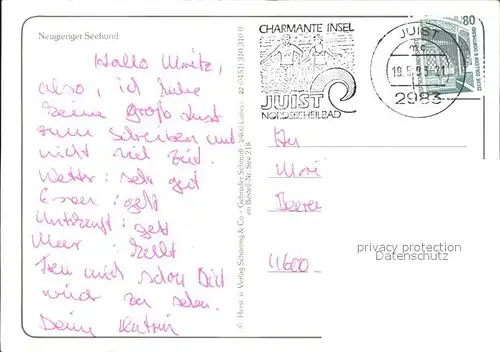 Neugieriger Seehund
Hallo Moritz,
also, ich habe
keine große Lust
zum Schreiben und
nicht viel Zeit.
Wetter: sehr gut
Essen: geht
Unterkunft: geht
Meer:
Freu mich schon Dich
wieder zu sehen.
Deine Katrin
© Horst u. Verlag Schöning & Co · Gebrüder Schmidt · 2400 Lübeck · ☎ 0451/310310
Bestell-Nr. See 218
CHARMANTE INSEL
JUIST
NORDSEEHEILBAD
JUIST
2983
80
An
Beeren
4600
privacy protection
AnsichtskartenVersand.com